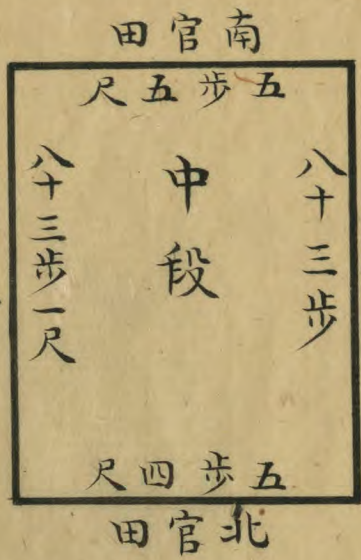 南官田
五步五尺
八十三步
中段
八十三步一尺
五步四尺
北官田